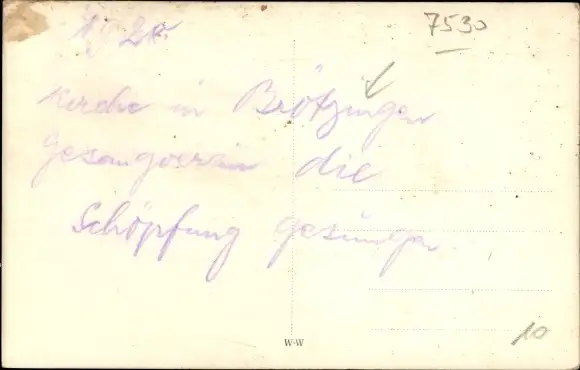 7530
Kirche in Brötzingen
Gesangverein die
Schöpfung gesungen
W-W
10